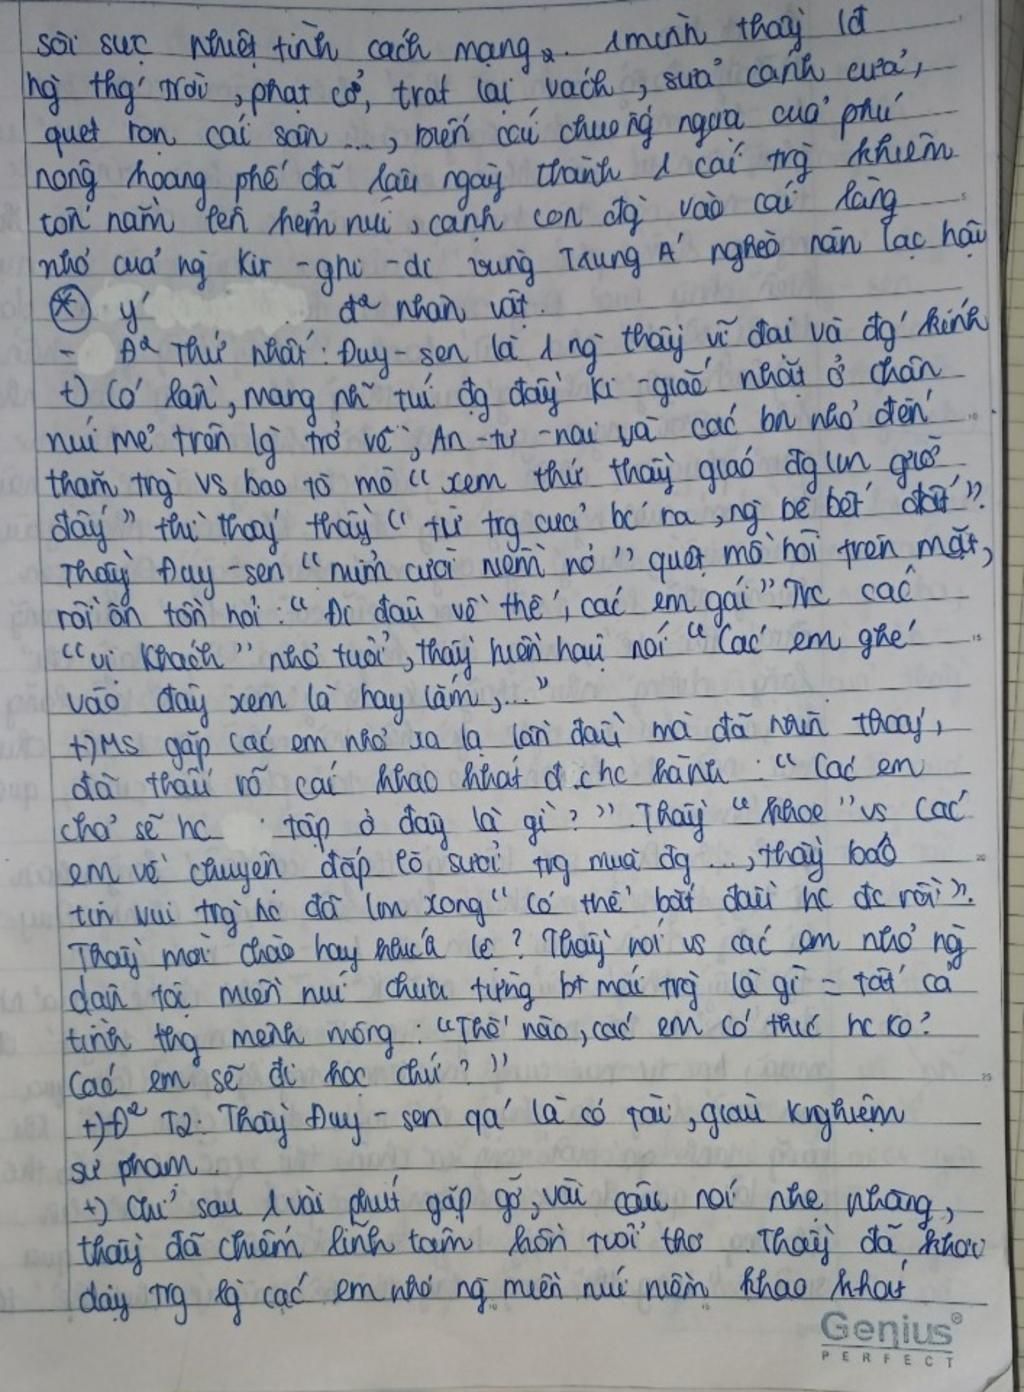 sôi sục nhiệt tình cách mạng. 1 mình thầy là
ng thg trời, phạt cỏ, trát lại vách, sửa cánh cửa,
quét dọn cái sân ..., biến cái chuồng ngựa của phú
nông hoang phế đã lâu ngày thành 1 cái trg khiêm
tốn nằm lên hẻm núi, cạnh con đg vào cái làng
nhỏ của ng Kir - ghi - di vùng Trung Á nghèo nàn lạc hậu
* ý đ² nhân vật.
- Đ² Thứ nhất: Đuy - sen là 1 ng thầy vĩ đại và đg kính
+) Có lần, mang nh túi đg đầy ki - giắc nhặt ở chân
núi mé trên lg trở về, An - tư - nai và các bn nhỏ đến
thăm trg vs bao tò mò "xem thử thầy giáo đg lm gì ở
đấy" thì thấy thầy "từ trg cửa bc ra, ng bê bết đất".
Thầy Đuy - sen "mỉm cười niềm nở" quệt mồ hôi trên mặt,
rồi ôn tồn hỏi: "Đi đâu về thế, các em gái". Trc các
"vị khách" nhỏ tuổi, thầy hiền hậu nói "Các em ghé
vào đây xem là hay lắm, ..."
+) MS gặp các em nhỏ xa lạ lần đầu mà đã nhìn thấy,
đã thấu rõ cái khao khát đ.chc hành: "Các em
chả sẽ hc tập ở đây là gì?". Thầy "khoe" vs các
em về chuyện đắp lò sưởi trg mùa đg ..., thầy báo
tin vui trg hc đã lm xong "có thể bắt đầu hc đc rồi".
Thầy mời chào hay khích lệ? Thầy nói vs các em nhỏ ng
dân tộc miền núi chưa từng bt mái trg là gì = tất cả
tình thg mênh mông: "Thế nào, các em có thíc hc ko?
Các em sẽ đi học chứ?"
+) Đ² T2: Thầy Đuy - sen qá là có tài, giàu knghiệm
sư phạm
+) Chỉ sau 1 vài phút gặp gỡ, vài câu nói nhẹ nhàng,
thầy đã chiếm lĩnh tâm hồn tuổi thơ. Thầy đã khơi
dậy trg lg các em nhỏ ng miền núi niềm khao khát
Genius®
PERFECT